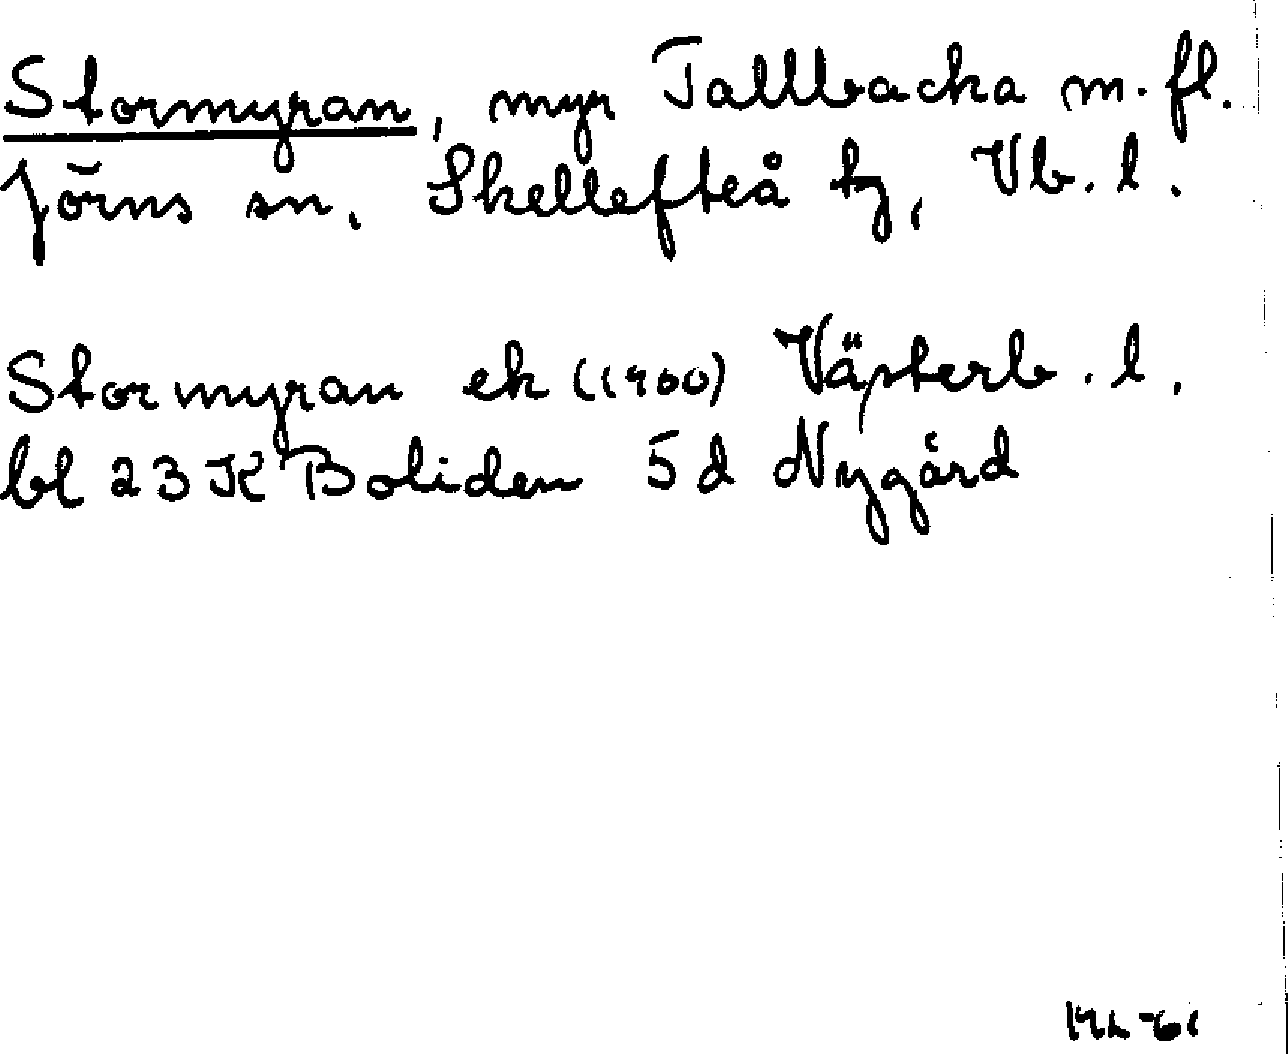 Stormyran, myr Tallbacka m. fl.
Jörns sn, Skellefteå tg, Vb. l.
Stormyran ek (1960) Västerb. l.
bl 23 K Boliden 5 d Nygård